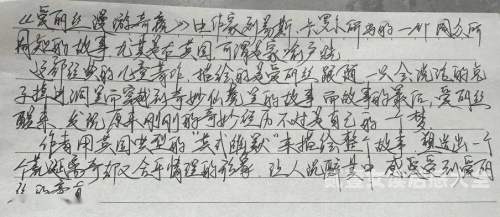 《爱丽丝漫游奇境》由作家刘易斯·卡罗尔所写的一部闻名所
周知的故事,尤其在英国可谓是家喻户晓
这部经典的儿童著作,描绘的是爱丽丝跟随一只会说话的兔
子掉进洞里而穿越到奇妙仙境里的故事,而故事的最后,爱丽丝
醒来,发现原来刚刚的奇妙经历不过是自己的一个梦
作者用英国典型的“英式幽默”来描绘整个故事,塑造出一个
个荒诞离奇却又合乎情理的形象,让人沉醉其中,感受到爱丽
丝的